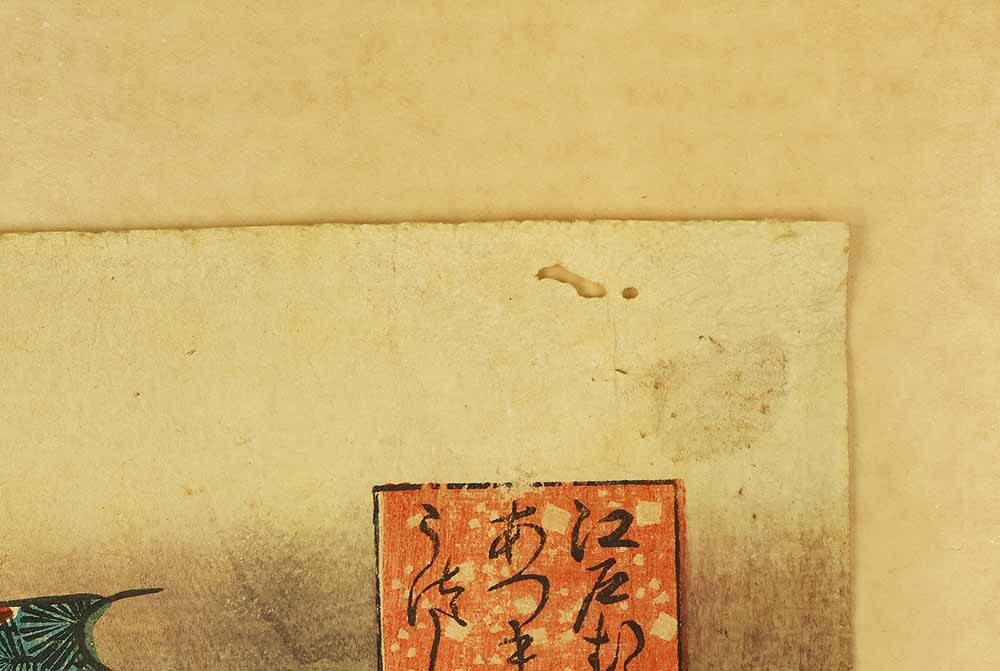 江戸む
あつま
うつし